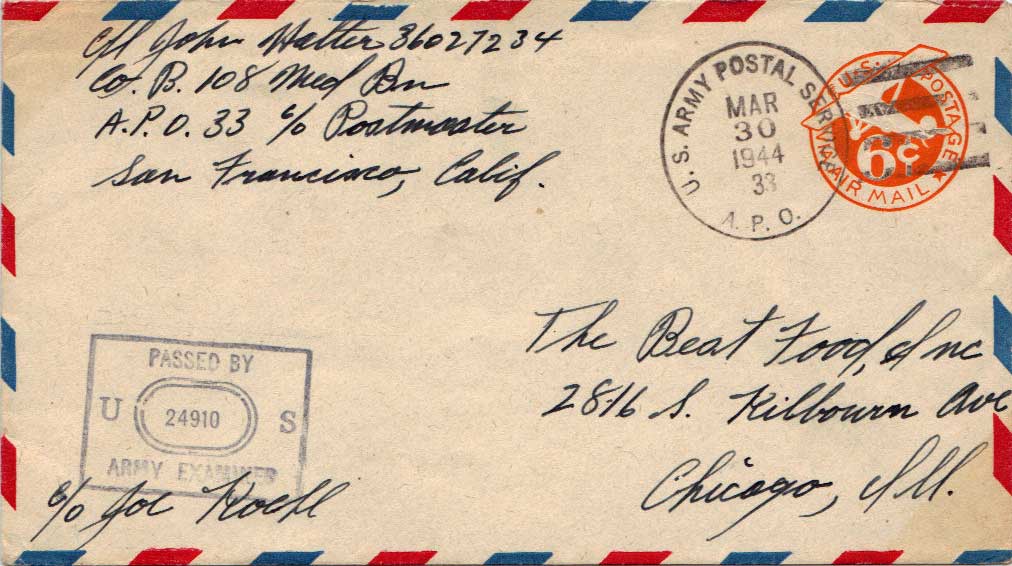 Cpl John Walter 36027234
Co. B. 108 Med Bn
A.P.O. 33 c/o Postmaster
San Francisco, Calif.
U. S. ARMY POSTAL SERVICE
MAR
30
1944
33
A. P. O.
U.S. POSTAGE
6¢
VIA AIR MAIL
The Best Food, Inc
2816 S. Kilbourn Ave
Chicago, Ill.
PASSED BY
U 24910 S
ARMY EXAMINER
c/o Joe